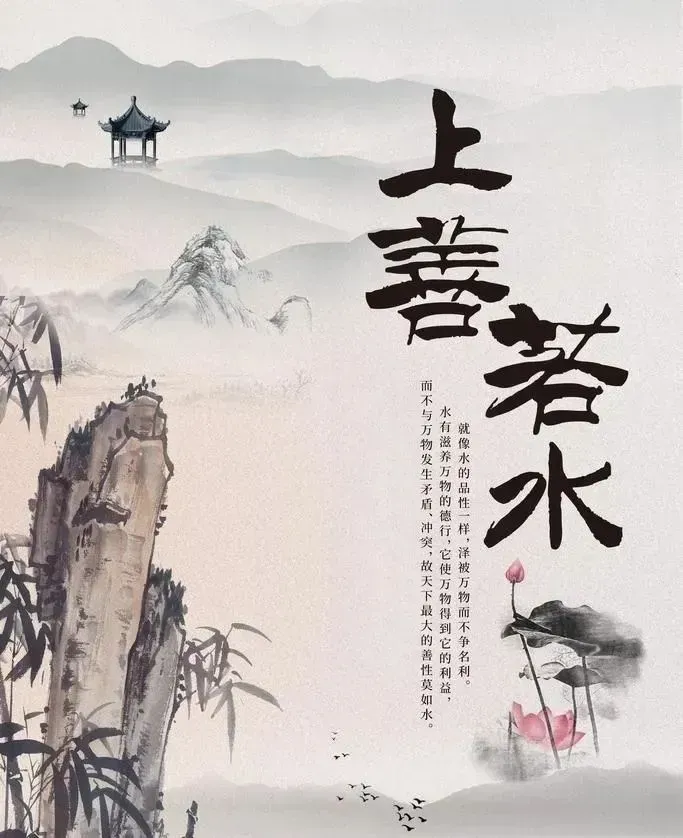 上善
若水
就像水的品性一样，泽被万物而不争名利。
水有滋养万物的德行，它使万物得到它的利益，
而不与万物发生矛盾、冲突，故天下最大的善性莫如水。